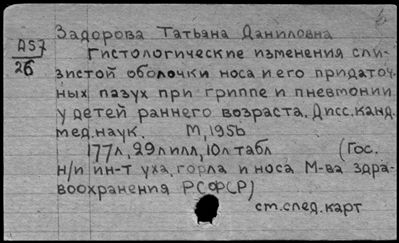 Задорова Татьяна Даниловна
А57
26
Гистологические изменения сли-
зистой оболочки носа и его придаточ-
ных пазух при гриппе и пневмонии
у детей раннего возраста. Дисс.канд.
мед.наук. М, 1956
177л, 29л илл, 10л табл (Гос.
н/и ин-т уха, горла и носа М-ва здра-
воохранения РСФСР)
см.след.карт